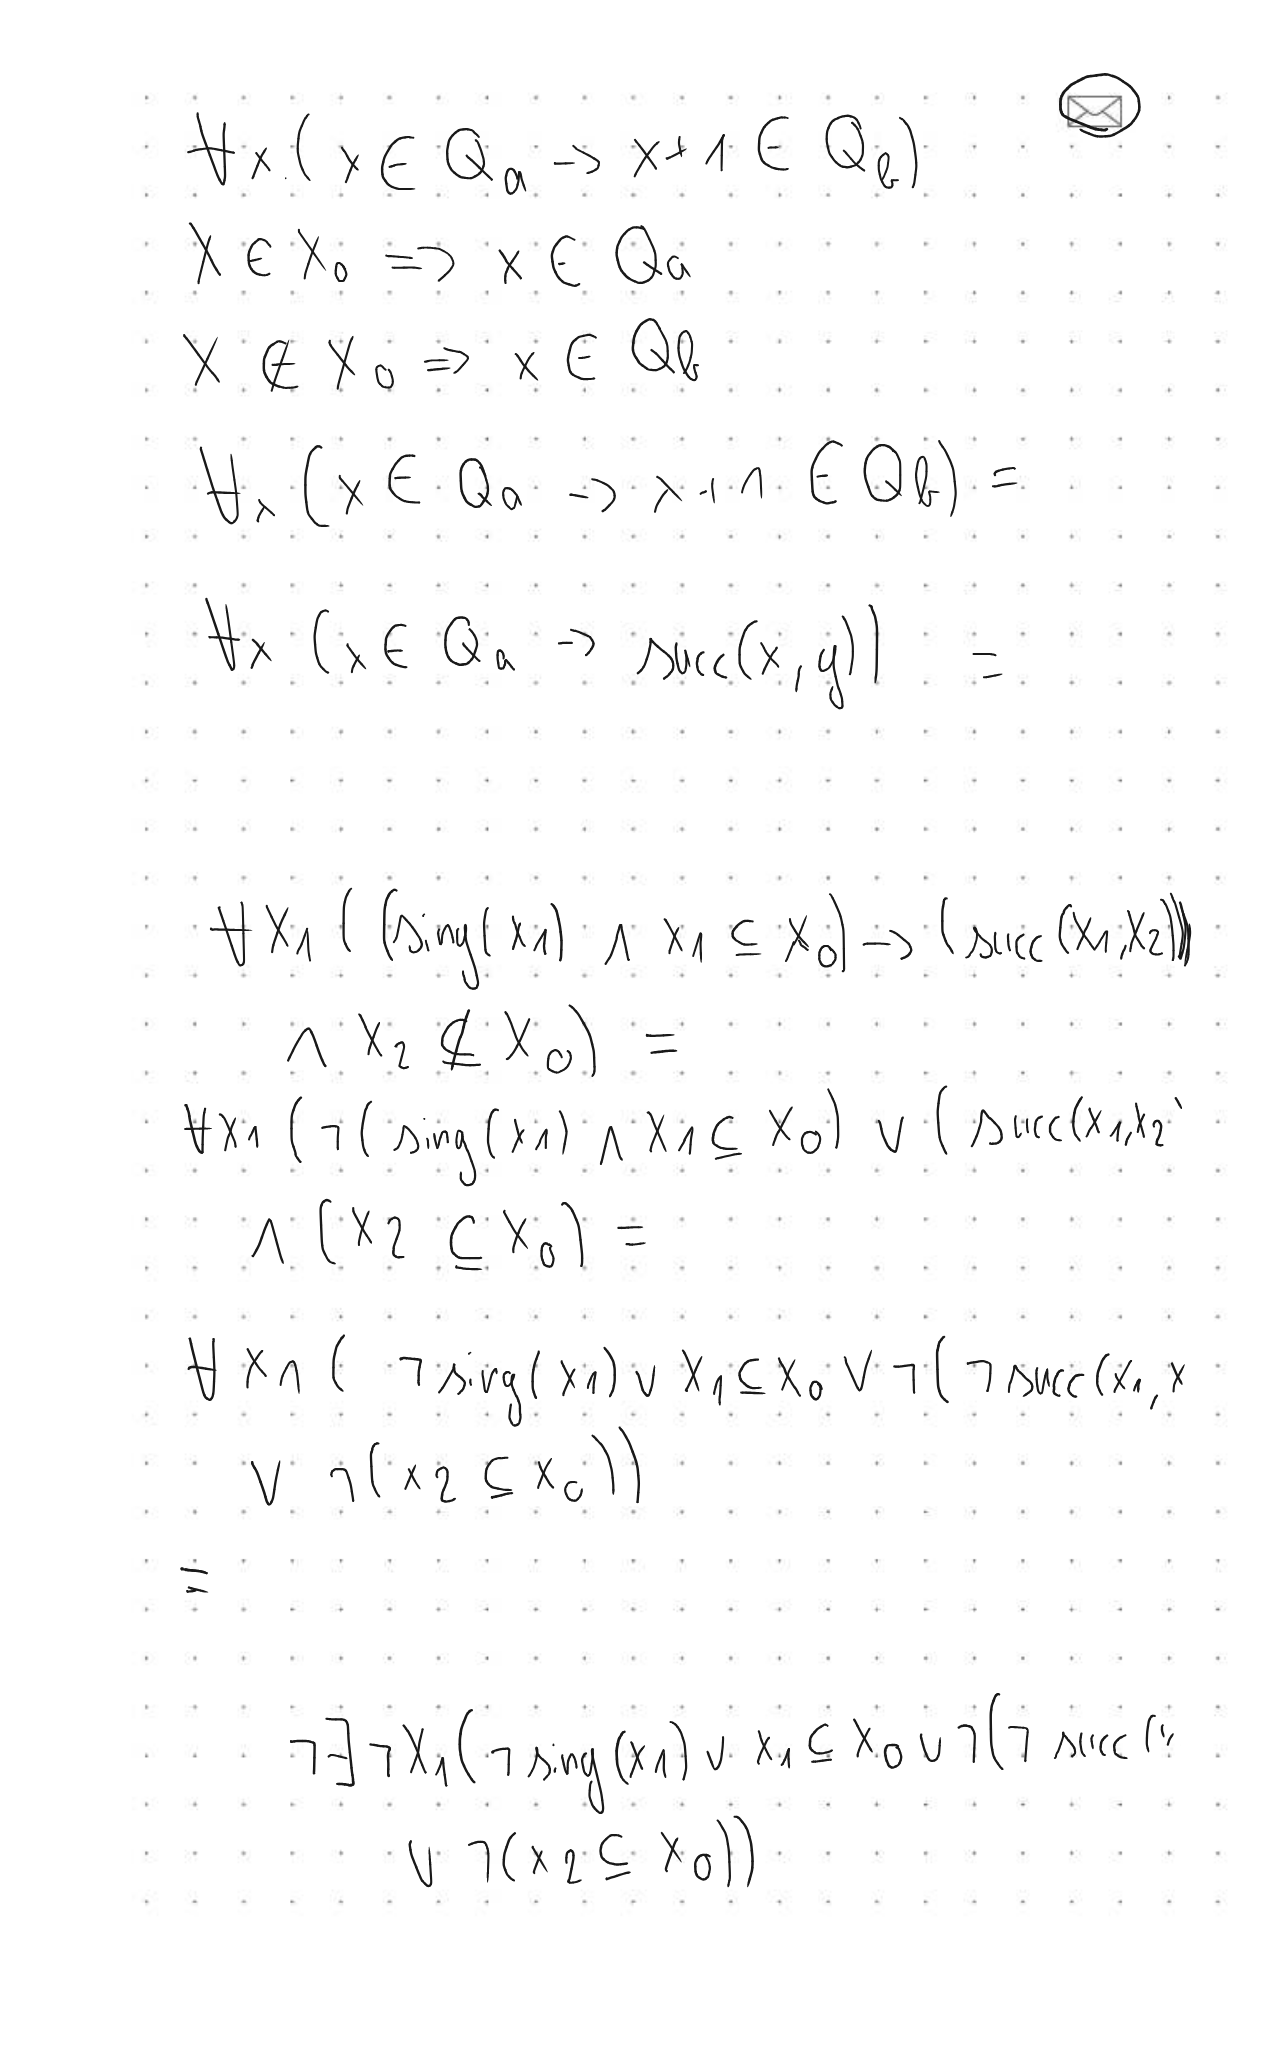 ∀x (x ∈ Qa -> x+1 ∈ Qb)
X ∈ X0 => x ∈ Qa
X ∉ X0 => x ∈ Qb
∀x (x ∈ Qa -> x+1 ∈ Qb) =
∀x (x ∈ Qa -> succ(x,y)) =
∀X1 ((sing(X1) ∧ X1 ⊆ X0) -> (succ(X1,X2)))
∧ X2 ⊈ X0) =
∀X1 (¬(sing(X1) ∧ X1 ⊆ X0) ∨ (succ(X1,X2
∧ (X2 ⊆ X0) =
∀X1 ( ¬sing(X1) ∨ X1 ⊆ X0 ∨ ¬(¬succ(X1, X
∨ ¬(X2 ⊆ X0))
=
¬∃¬X1(¬sing(X1) ∨ X1 ⊆ X0 ∨ ¬(¬succ(
∨ ¬(X2 ⊆ X0))